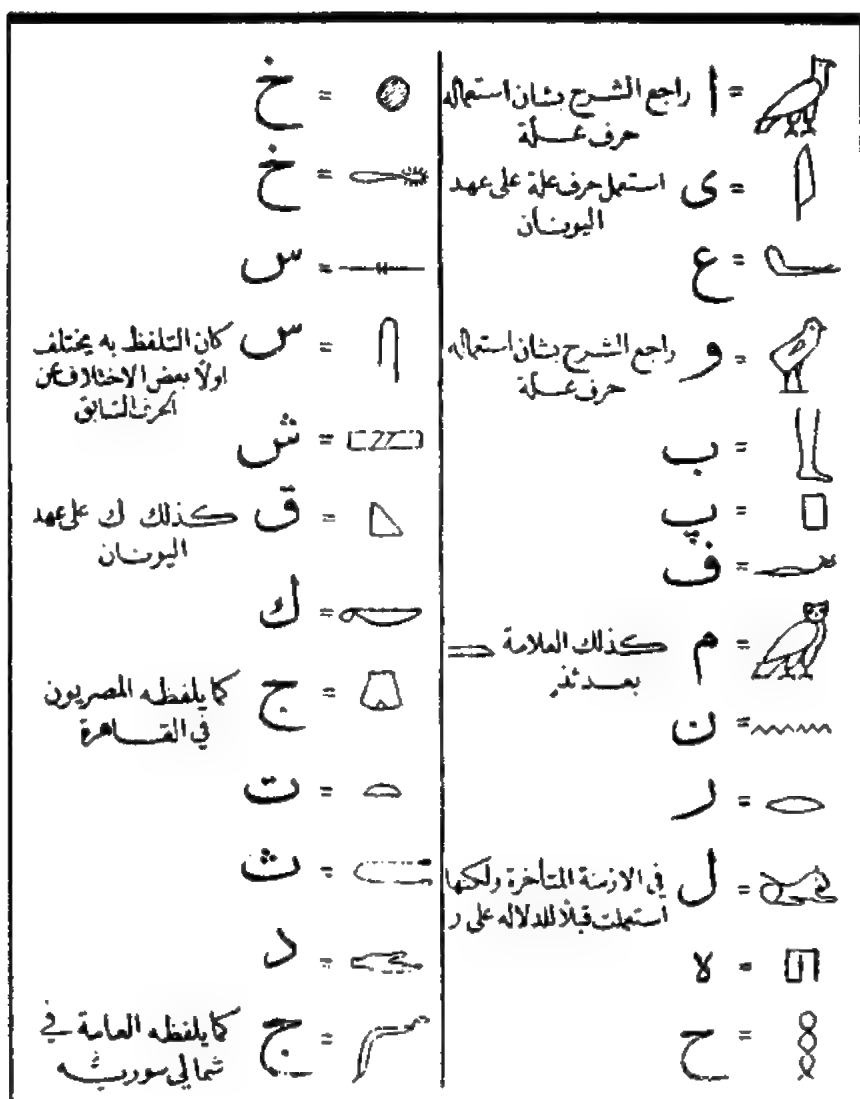 = ا راجع الشرح بشان استعماله
حرف عـلّة
= ى استعمل حرف علة على عهد
اليونـان
= ع
= و راجع الشرح بشان استعماله
حرف عـلّة
= ب
= پ
= ف
= م كذلك العلامة
بعـد ئذٍ
= ن
= ر
= ل في الازمنة المتأخرة ولكنها
استعملت قبلاً للدلاله على ر
= ﻻ
= ح
= خ
= خ
= س
= س كان التلفظ به يختلف
اولاً بعض الاختلاف عن
الحرف السابق
= ش
= ق كذلك ك على عهد
اليونـان
= ك
= ج كما يلفظه المصريون
في القـاهرة
= ت
= ث
= د
= ج كما يلفظه العامة في
شمالي سوريـه